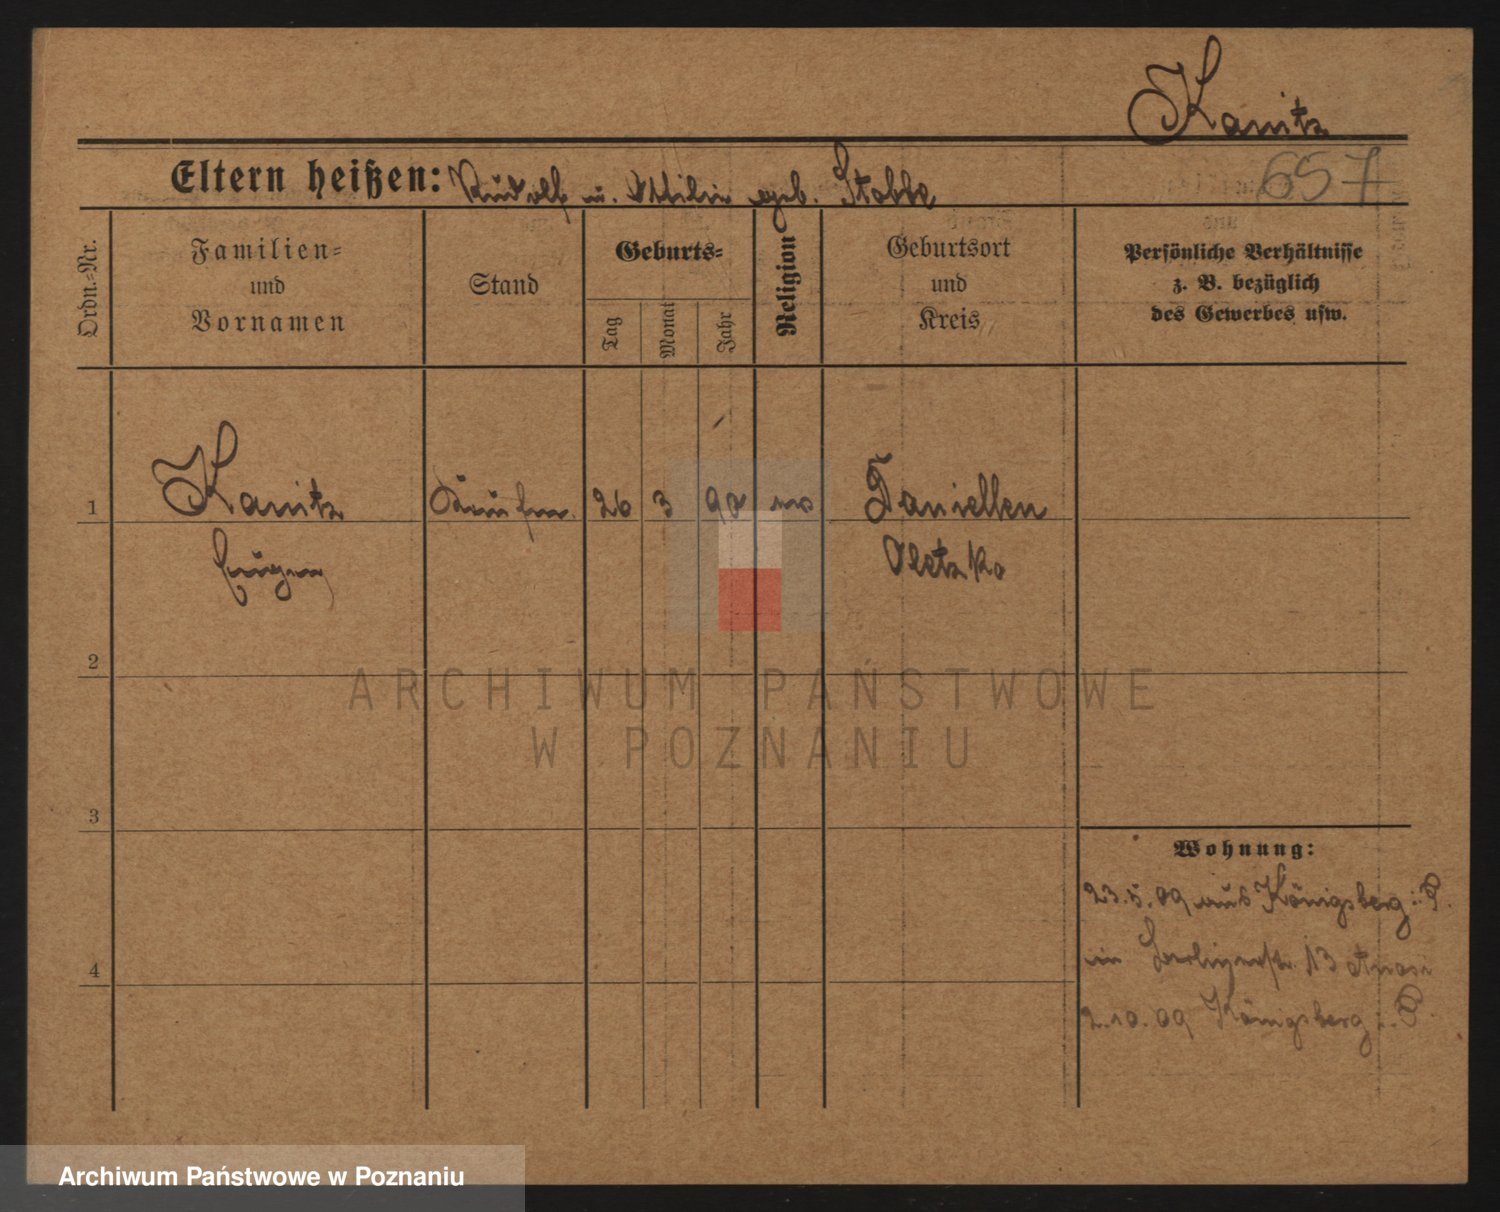 Kanitz
657
Eltern heißen: Rudolf u. Ottilie geb. Stobbe
Ordn.-Nr.
Familien-
und
Vornamen
Stand
Geburts-
Tag
Monat
Jahr
Religion
Geburtsort
und
Kreis
Persönliche Verhältnisse
z. B. bezüglich
des Gewerbes usw.
1 Kanitz 26 3 Daniellen
Eugen Oletzko
2
3
4
Wohnung:
23.5.09 aus Königsberg i. P.
in 13
2.10.09 Königsberg i. P.
ARCHIWUM PAŃSTWOWE
W POZNANIU
Archiwum Państwowe w Poznaniu